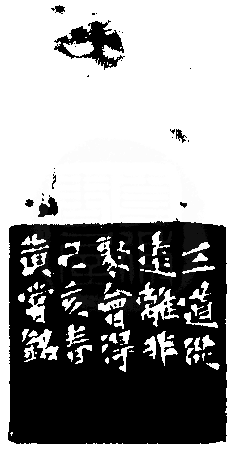 三道從
遠離非
數會得
己亥春
黃嘗銘